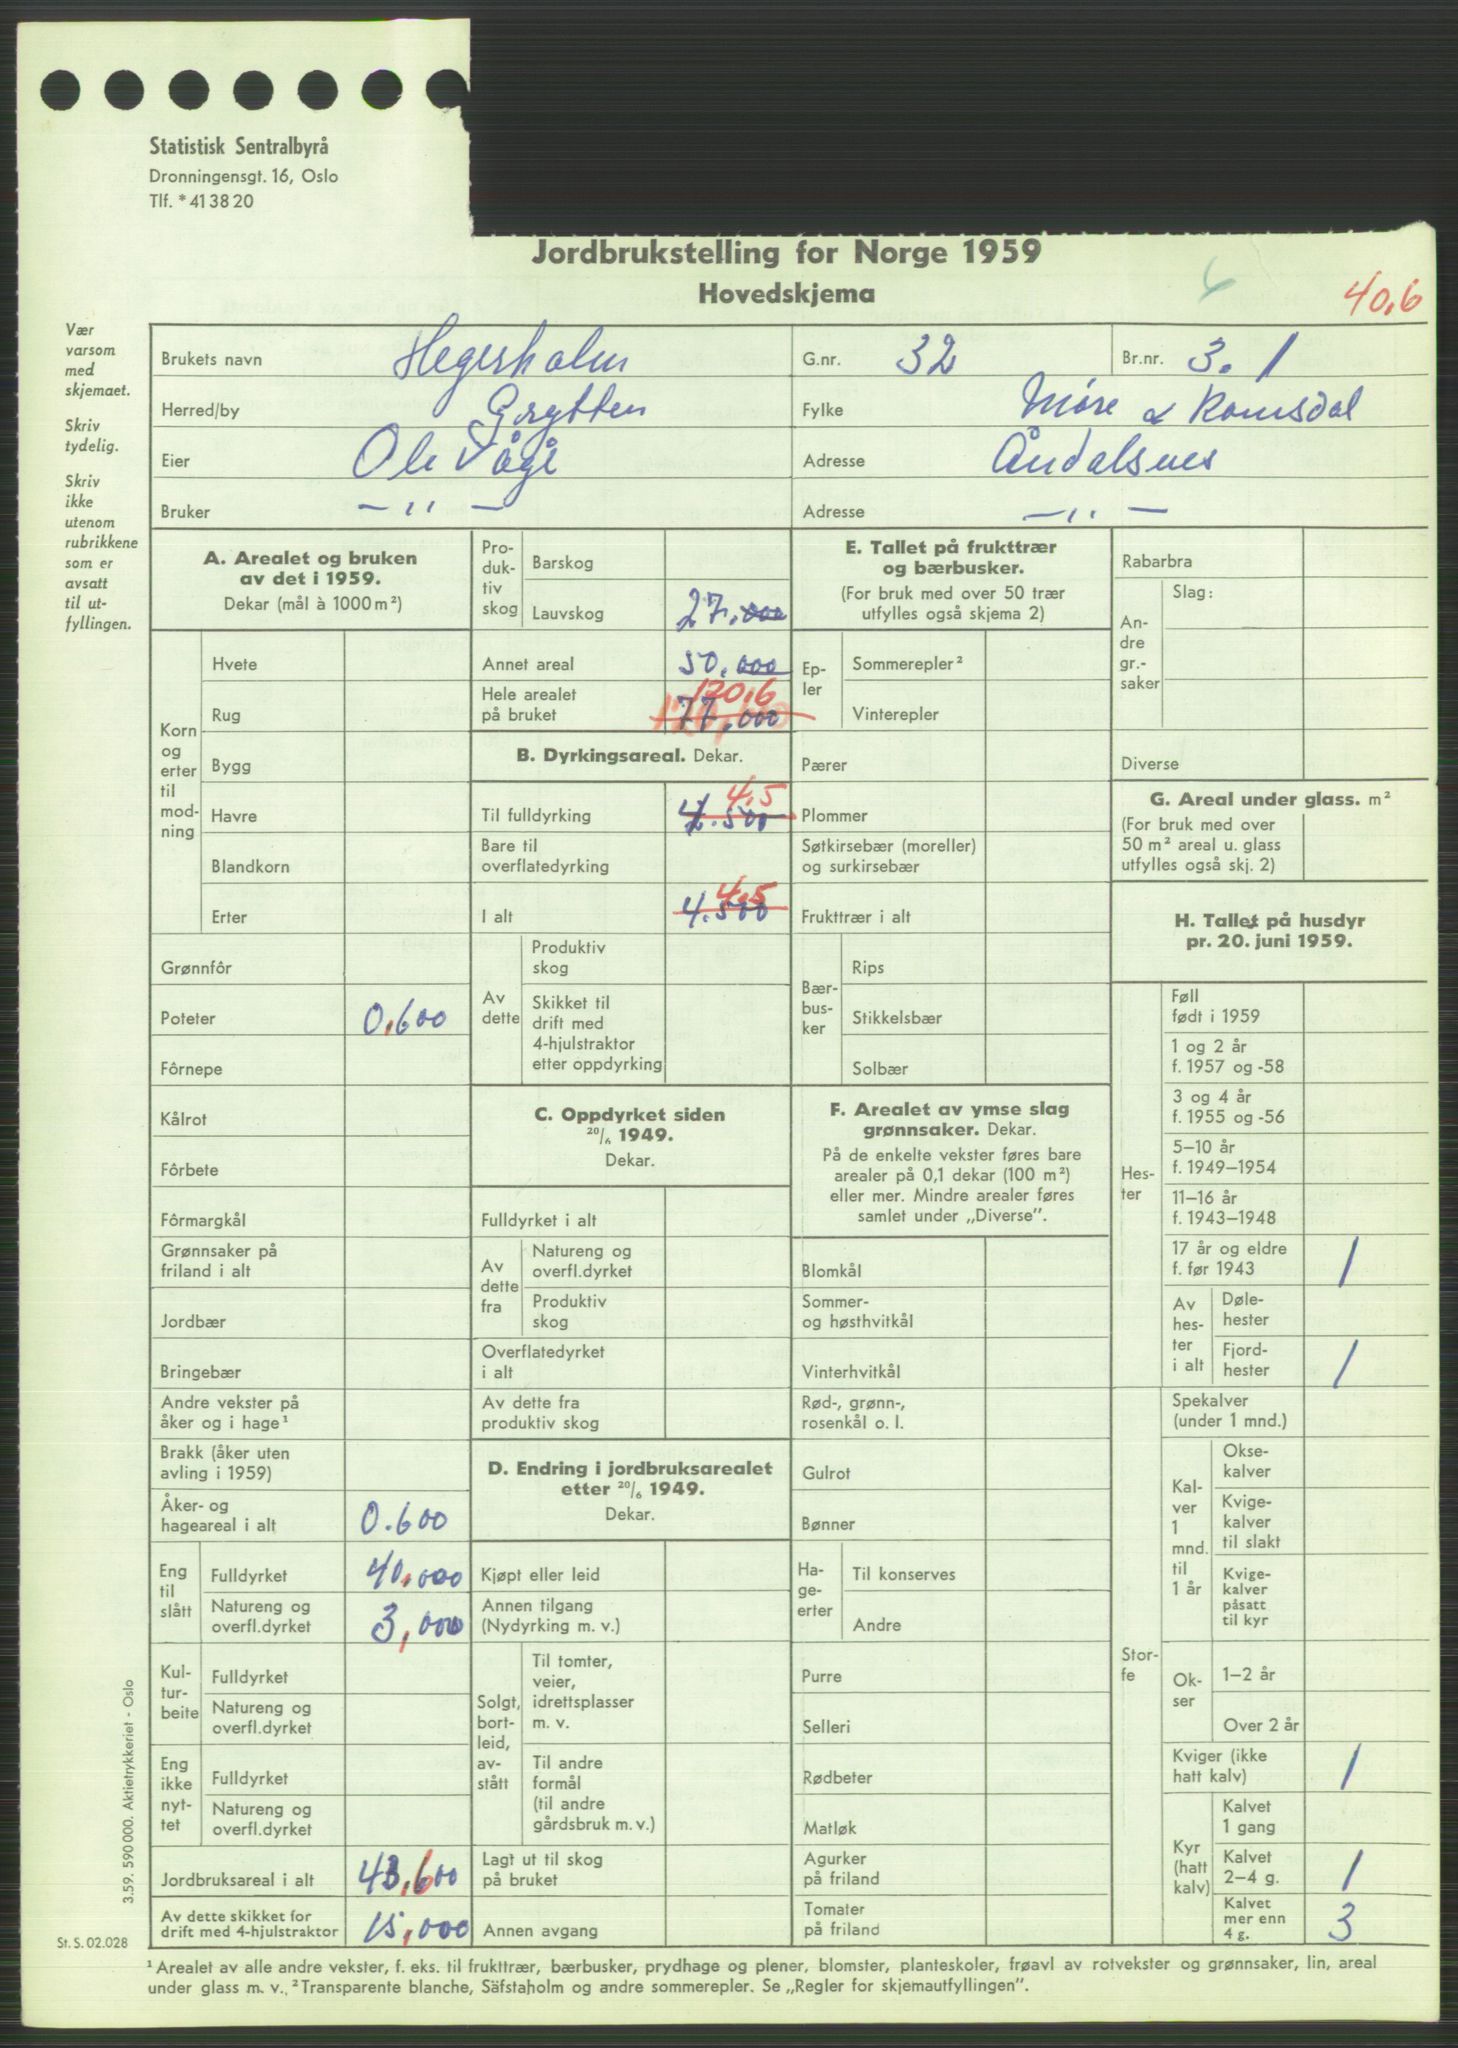 Statistisk Sentralbyrå
Dronningensgt. 16, Oslo
Tlf. * 41 38 20
Jordbrukstelling for Norge 1959
Hovedskjema
40,6
Vær
varsom
med
skjemaet.
Skriv
tydelig.
Skriv
ikke
utenom
rubrikkene
som er
avsatt
til ut-
fyllingen.
Brukets navn Hegerholm G.nr. 32 Br.nr. 3. 1
Herred/by Grytten Fylke Møre & Romsdal
Eier Ole Vågå Adresse Åndalsnes
Bruker — ,, — Adresse — ,, —
A. Arealet og bruken
av det i 1959.
Dekar (mål à 1000 m²)
Korn
og
erter
til
mod-
ning
Hvete
Rug
Bygg
Havre
Blandkorn
Erter
Grønnfôr
Poteter 0,600
Fôrnepe
Kålrot
Fôrbete
Fôrmargkål
Grønnsaker på
friland i alt
Jordbær
Bringebær
Andre vekster på
åker og i hage¹
Brakk (åker uten
avling i 1959)
Åker- og
hageareal i alt 0.600
Eng
til
slått
Fulldyrket 40,000
Natureng og
overfl.dyrket 3,000
Kul-
tur-
beite
Fulldyrket
Natureng og
overfl.dyrket
Eng
ikke
nyt-
tet
Fulldyrket
Natureng og
overfl.dyrket
Jordbruksareal i alt 43,600
Av dette skikket for
drift med 4-hjulstraktor 15,000
Pro-
duk-
tiv
skog
Barskog
Lauvskog 27,000
Annet areal 50,000
Hele arealet
på bruket 120,6
77,000
B. Dyrkingsareal. Dekar.
Til fulldyrking 4,5
4.500
Bare til
overflatedyrking
I alt 4,5
4.500
Av
dette
Produktiv
skog
Skikket til
drift med
4-hjulstraktor
etter oppdyrking
C. Oppdyrket siden
20/6 1949.
Dekar.
Fulldyrket i alt
Av
dette
fra
Natureng og
overfl.dyrket
Produktiv
skog
Overflatedyrket
i alt
Av dette fra
produktiv skog
D. Endring i jordbruksarealet
etter 20/6 1949.
Dekar.
Kjøpt eller leid
Annen tilgang
(Nydyrking m. v.)
Solgt,
bort-
leid,
av-
stått
Til tomter,
veier,
idrettsplasser
m. v.
Til andre
formål
(til andre
gårdsbruk m. v.)
Lagt ut til skog
på bruket
Annen avgang
E. Tallet på frukttrær
og bærbusker.
(For bruk med over 50 trær
utfylles også skjema 2)
Ep-
ler
Sommerepler²
Vinterepler
Pærer
Plommer
Søtkirsebær (moreller)
og surkirsebær
Frukttrær i alt
Bær-
bus-
ker
Rips
Stikkelsbær
Solbær
F. Arealet av ymse slag
grønnsaker. Dekar.
På de enkelte vekster føres bare
arealer på 0,1 dekar (100 m²)
eller mer. Mindre arealer føres
samlet under „Diverse”.
Blomkål
Sommer-
og høsthvitkål
Vinterhvitkål
Rød-, grønn-,
rosenkål o. l.
Gulrot
Bønner
Ha-
ge-
erter
Til konserves
Andre
Purre
Selleri
Rødbeter
Matløk
Agurker
på friland
Tomater
på friland
Rabarbra
An-
dre
gr.-
saker
Slag:
Diverse
G. Areal under glass. m²
(For bruk med over
50 m² areal u. glass
utfylles også skj. 2)
H. Tallet på husdyr
pr. 20. juni 1959.
Hes-
ter
Føll
født i 1959
1 og 2 år
f. 1957 og -58
3 og 4 år
f. 1955 og -56
5–10 år
f. 1949–1954
11–16 år
f. 1943–1948
17 år og eldre
f. før 1943 1
Av
hes-
ter
i alt
Døle-
hester
Fjord-
hester 1
Stor-
fe
Spekalver
(under 1 mnd.)
Kal-
ver
1
mnd.
til
1 år
Okse-
kalver
Kvige-
kalver
til slakt
Kvige-
kalver
påsatt
til kyr
Ok-
ser
1–2 år
Over 2 år
Kviger (ikke
hatt kalv) 1
Kyr
(hatt
kalv)
Kalvet
1 gang
Kalvet
2–4 g. 1
Kalvet
mer enn
4 g. 3
3.59. 590 000. Aktietrykkeriet - Oslo
St. S. 02.028
¹ Arealet av alle andre vekster, f. eks. til frukttrær, bærbusker, prydhage og plener, blomster, planteskoler, frøavl av rotvekster og grønnsaker, lin, areal
under glass m. v. ² Transparente blanche, Säfstaholm og andre sommerepler. Se „Regler for skjemautfyllingen”.